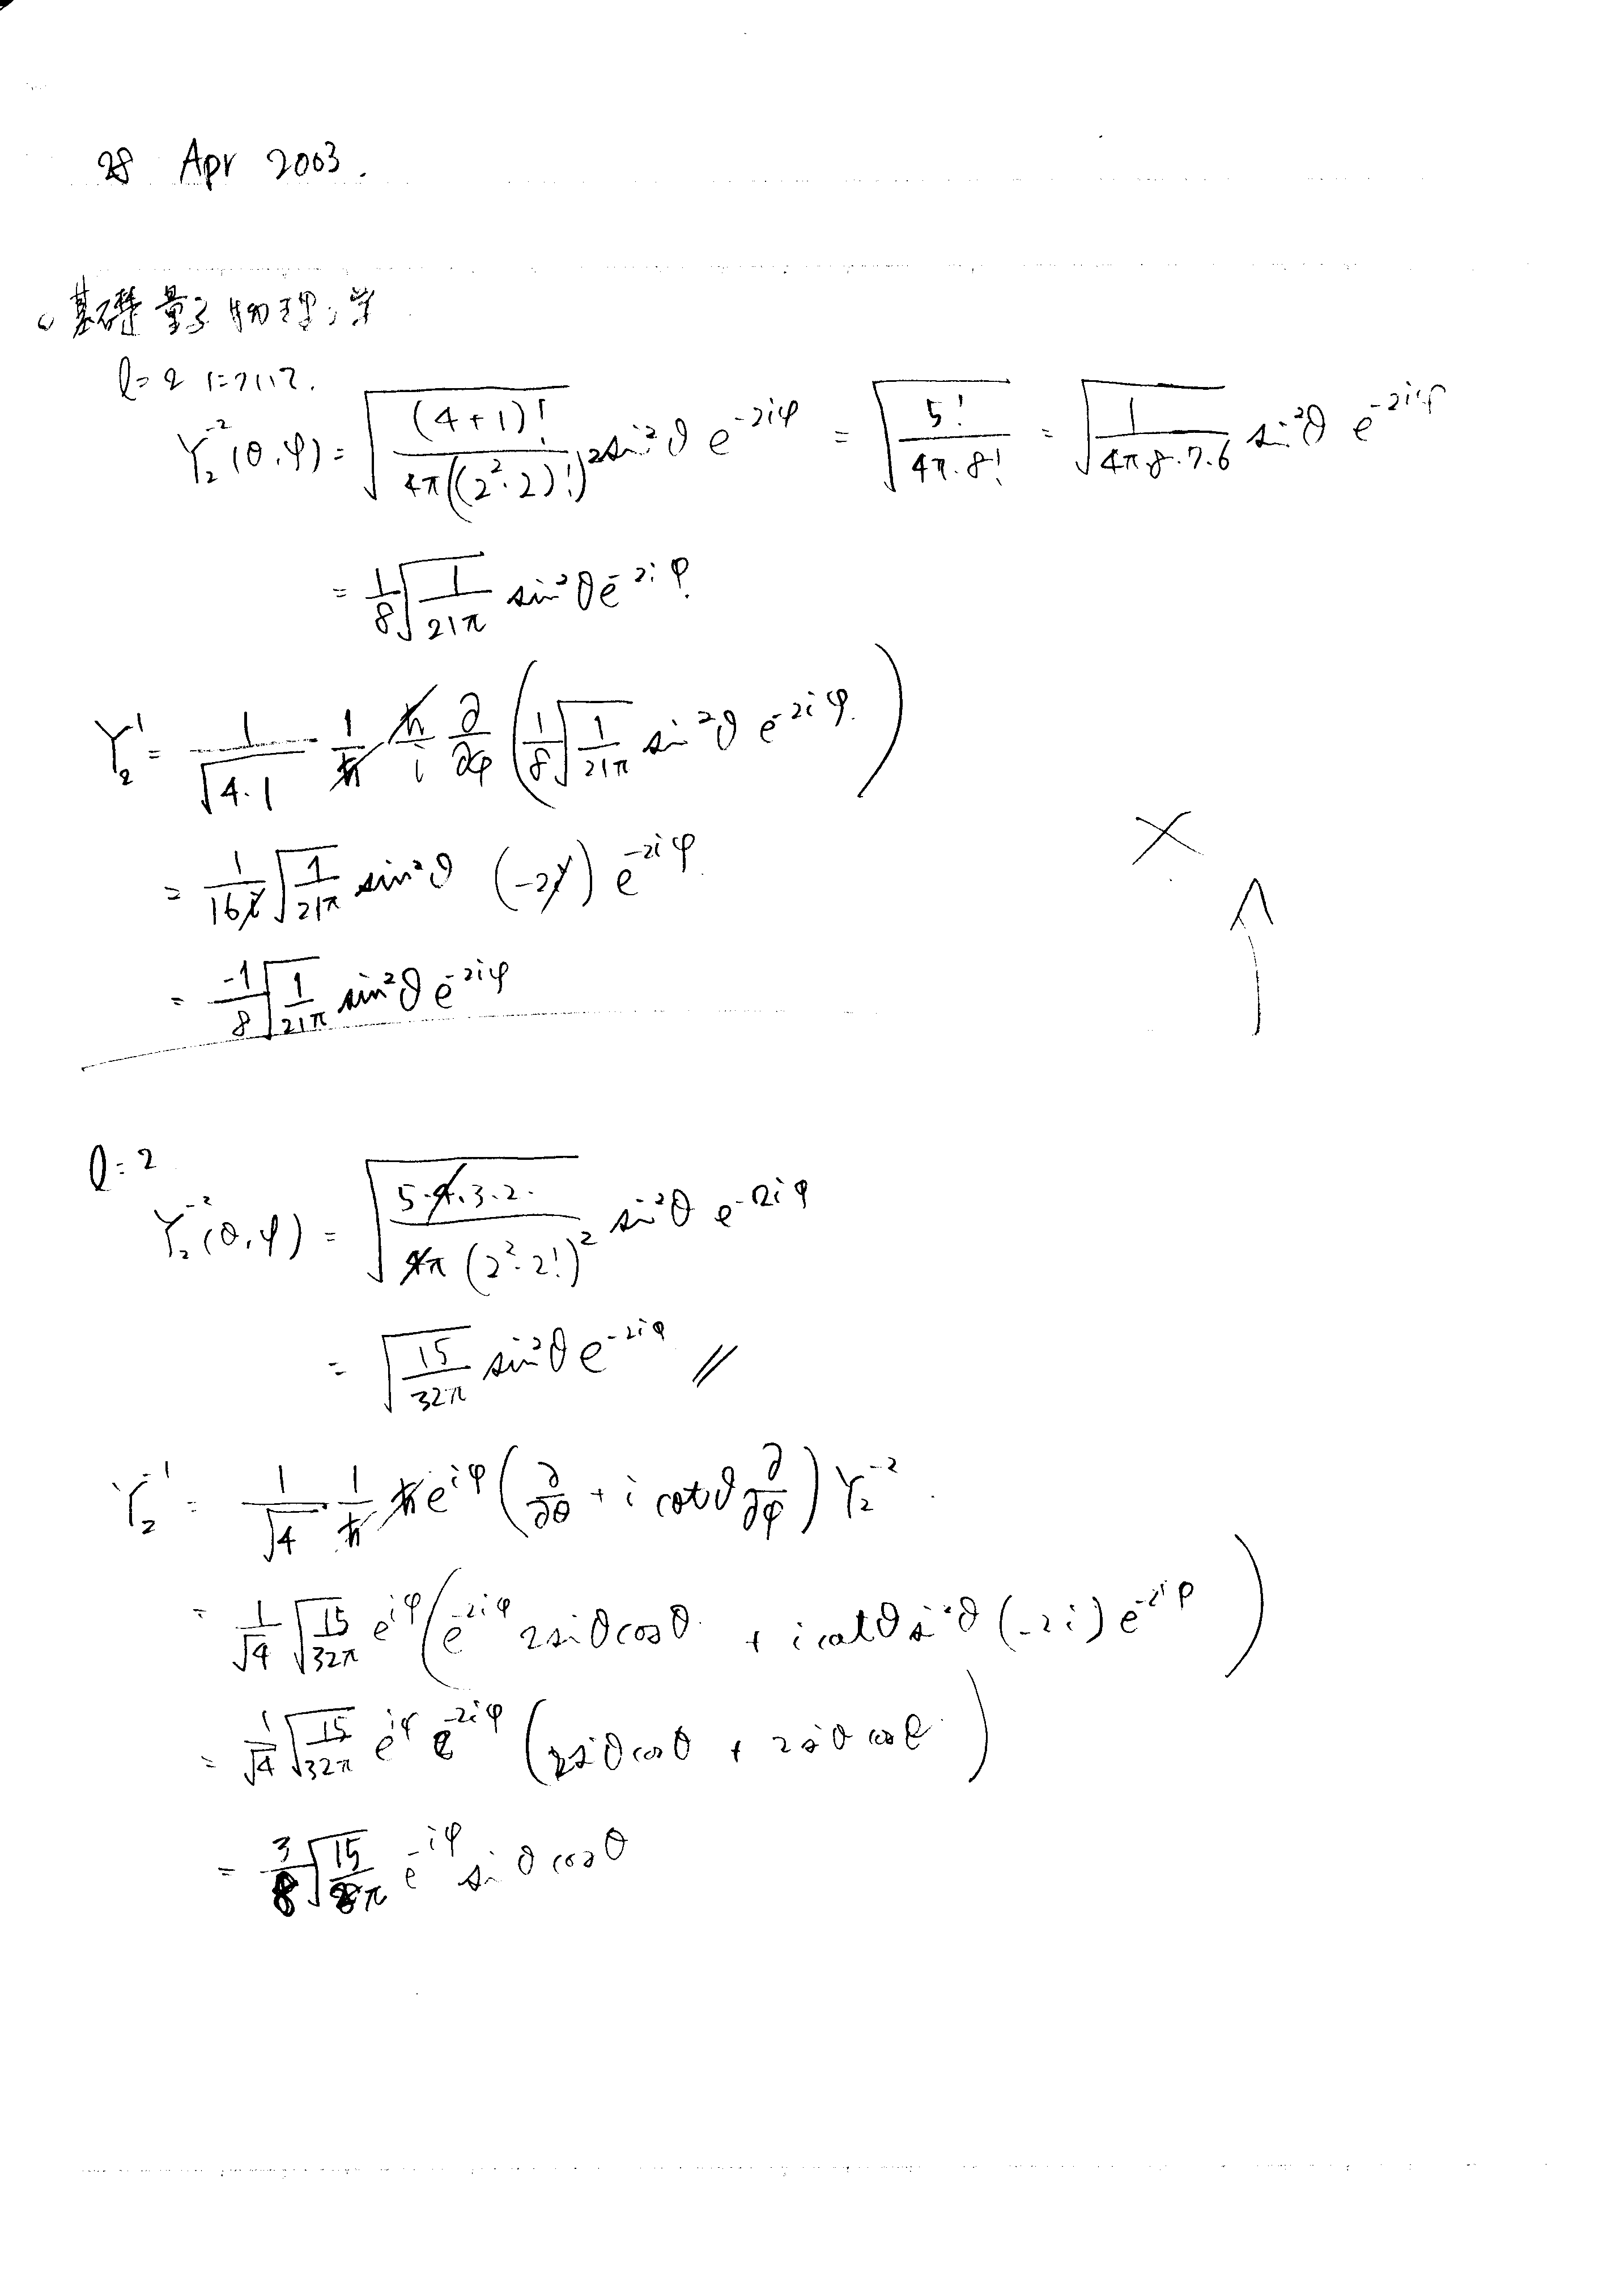 28 Apr 2003.
。基礎量子物理学
l=2 について.
Y₂⁻²(θ,φ) = √((4+1)! / 4π((2²·2)!)²) sin²θ e^{-2iφ} = √(5! / 4π·8!) = √(1 / 4π·8·7·6) sin²θ e^{-2iφ}
= 1/8 √(1/21π) sin²θ e^{-2iφ}
Y₂⁻¹ = 1/√(4·1) 1/ħ ħ/i ∂/∂φ (1/8 √(1/21π) sin²θ e^{-2iφ})
= 1/16i √(1/21π) sin²θ (-2i) e^{-2iφ}
= -1/8 √(1/21π) sin²θ e^{-2iφ}
×
↑
l=2
Y₂⁻²(θ,φ) = √(5·4·3·2 / 4π(2²·2!)²) sin²θ e^{-2iφ}
= √(15/32π) sin²θ e^{-2iφ} //
Y₂⁻¹ = 1/√4 1/ħ ħe^{iφ} (∂/∂θ + i cotθ ∂/∂φ) Y₂⁻²
= 1/√4 √(15/32π) e^{iφ} (e^{-2iφ} 2sinθcosθ + i cotθ sin²θ (-2i) e^{-2iφ})
= 1/√4 √(15/32π) e^{iφ} e^{-2iφ} (2sinθcosθ + 2sinθcosθ)
= √(15/8π) e^{-iφ} sinθ cosθ